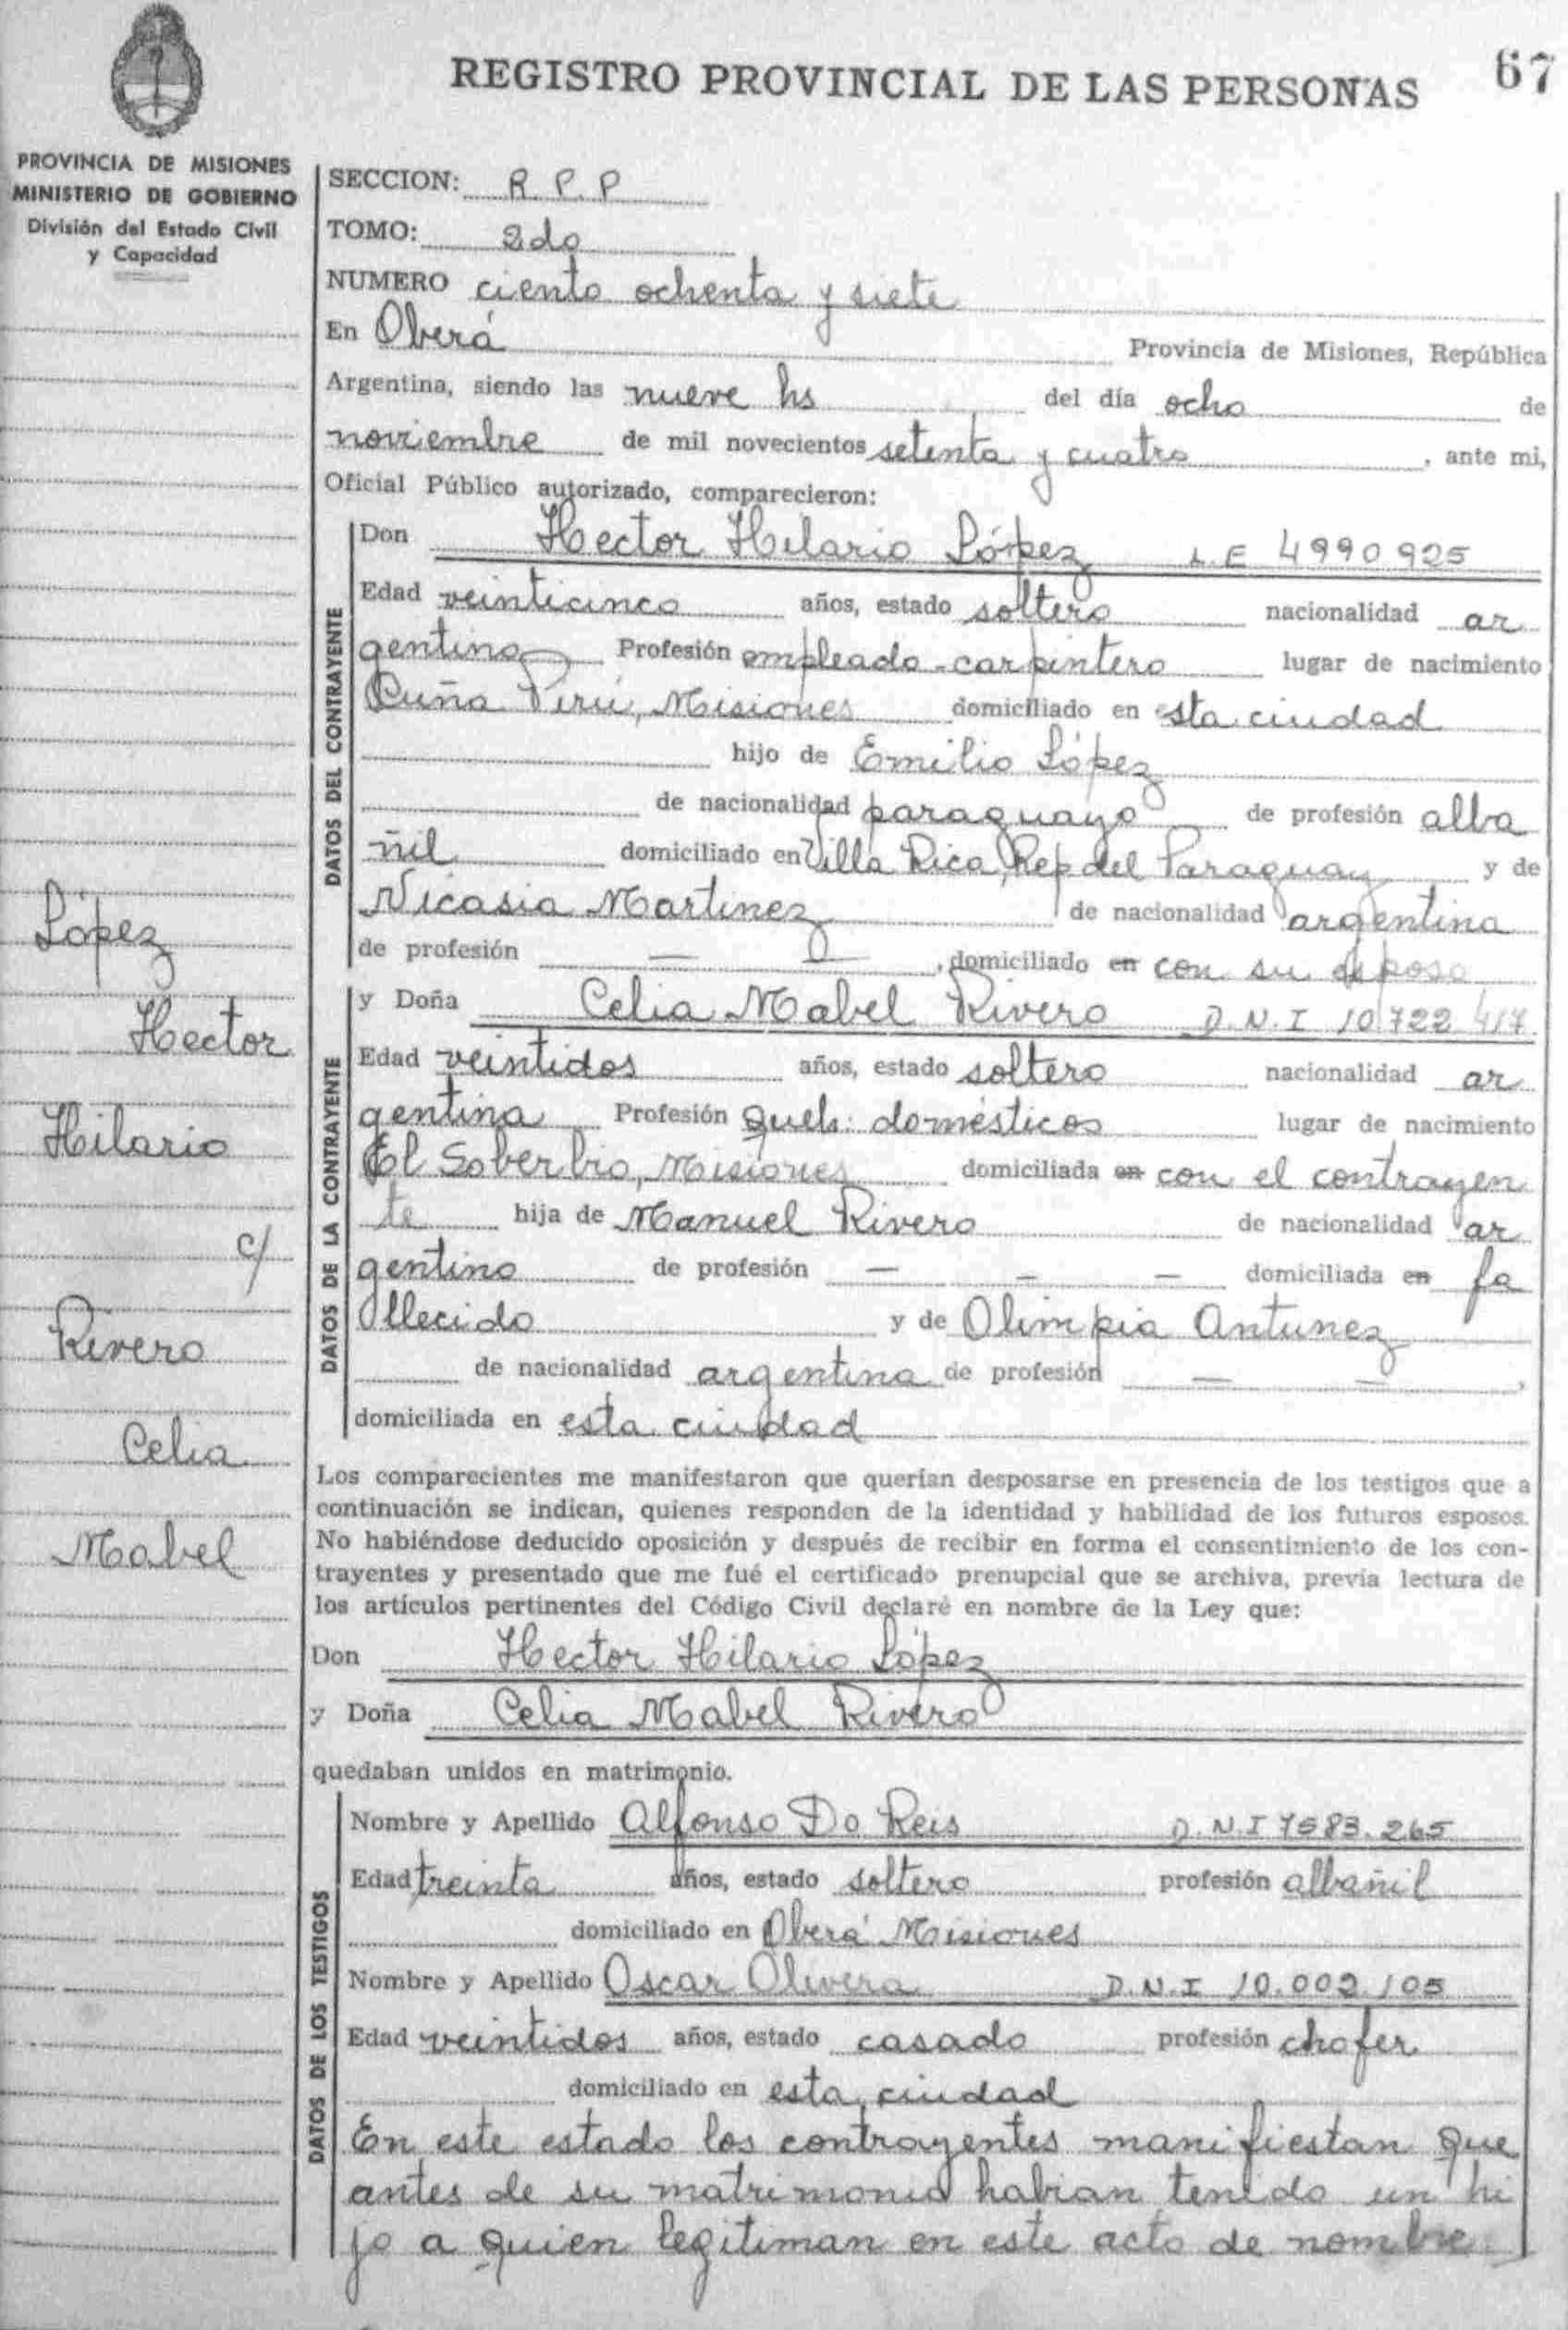 REGISTRO PROVINCIAL DE LAS PERSONAS 67
PROVINCIA DE MISIONES
MINISTERIO DE GOBIERNO
División del Estado Civil
y Capacidad
SECCION: R P P
TOMO: 2do
NUMERO ciento ochenta y siete
En Oberá Provincia de Misiones, República
Argentina, siendo las nueve hs del día ocho de
noviembre de mil novecientos setenta y cuatro, ante mi,
Oficial Público autorizado, comparecieron:
DATOS DEL CONTRAYENTE
Don Hector Hilario López L.E 4990925
Edad veinticinco años, estado soltero nacionalidad ar
gentino Profesión empleado-carpintero lugar de nacimiento
Cuña Pirú, Misiones domiciliado en esta ciudad
hijo de Emilio López
de nacionalidad paraguayo de profesión alba
ñil domiciliado en Villa Rica, Rep del Paraguay y de
Nicasia Martinez de nacionalidad argentina
de profesión — — , domiciliado en con su esposo
DATOS DE LA CONTRAYENTE
y Doña Celia Mabel Rivero D.N.I 10.722.417
Edad veintidos años, estado soltero nacionalidad ar
gentina Profesión queh. domésticos lugar de nacimiento
El Soberbio, Misiones domiciliada en con el contrayen
te hija de Manuel Rivero de nacionalidad ar
gentino de profesión — — — domiciliada en fa
llecido y de Olimpia Antunez
de nacionalidad argentina de profesión — — ,
domiciliada en esta ciudad
López
Hector
Hilario
c/
Rivero
Celia
Mabel
Los comparecientes me manifestaron que querían desposarse en presencia de los testigos que a
continuación se indican, quienes responden de la identidad y habilidad de los futuros esposos.
No habiéndose deducido oposición y después de recibir en forma el consentimiento de los con-
trayentes y presentado que me fué el certificado prenupcial que se archiva, previa lectura de
los artículos pertinentes del Código Civil declaré en nombre de la Ley que:
Don Hector Hilario López
y Doña Celia Mabel Rivero
quedaban unidos en matrimonio.
DATOS DE LOS TESTIGOS
Nombre y Apellido Alfonso Do Reis D.N.I 7583.265
Edad treinta años, estado soltero profesión albañil
domiciliado en Oberá Misiones
Nombre y Apellido Oscar Olivera D.N.I 10.002.105
Edad veintidos años, estado casado profesión chofer
domiciliado en esta ciudad
En este estado los contrayentes manifiestan que
antes de su matrimonio habian tenido un hi
jo a quien legitiman en este acto de nombre